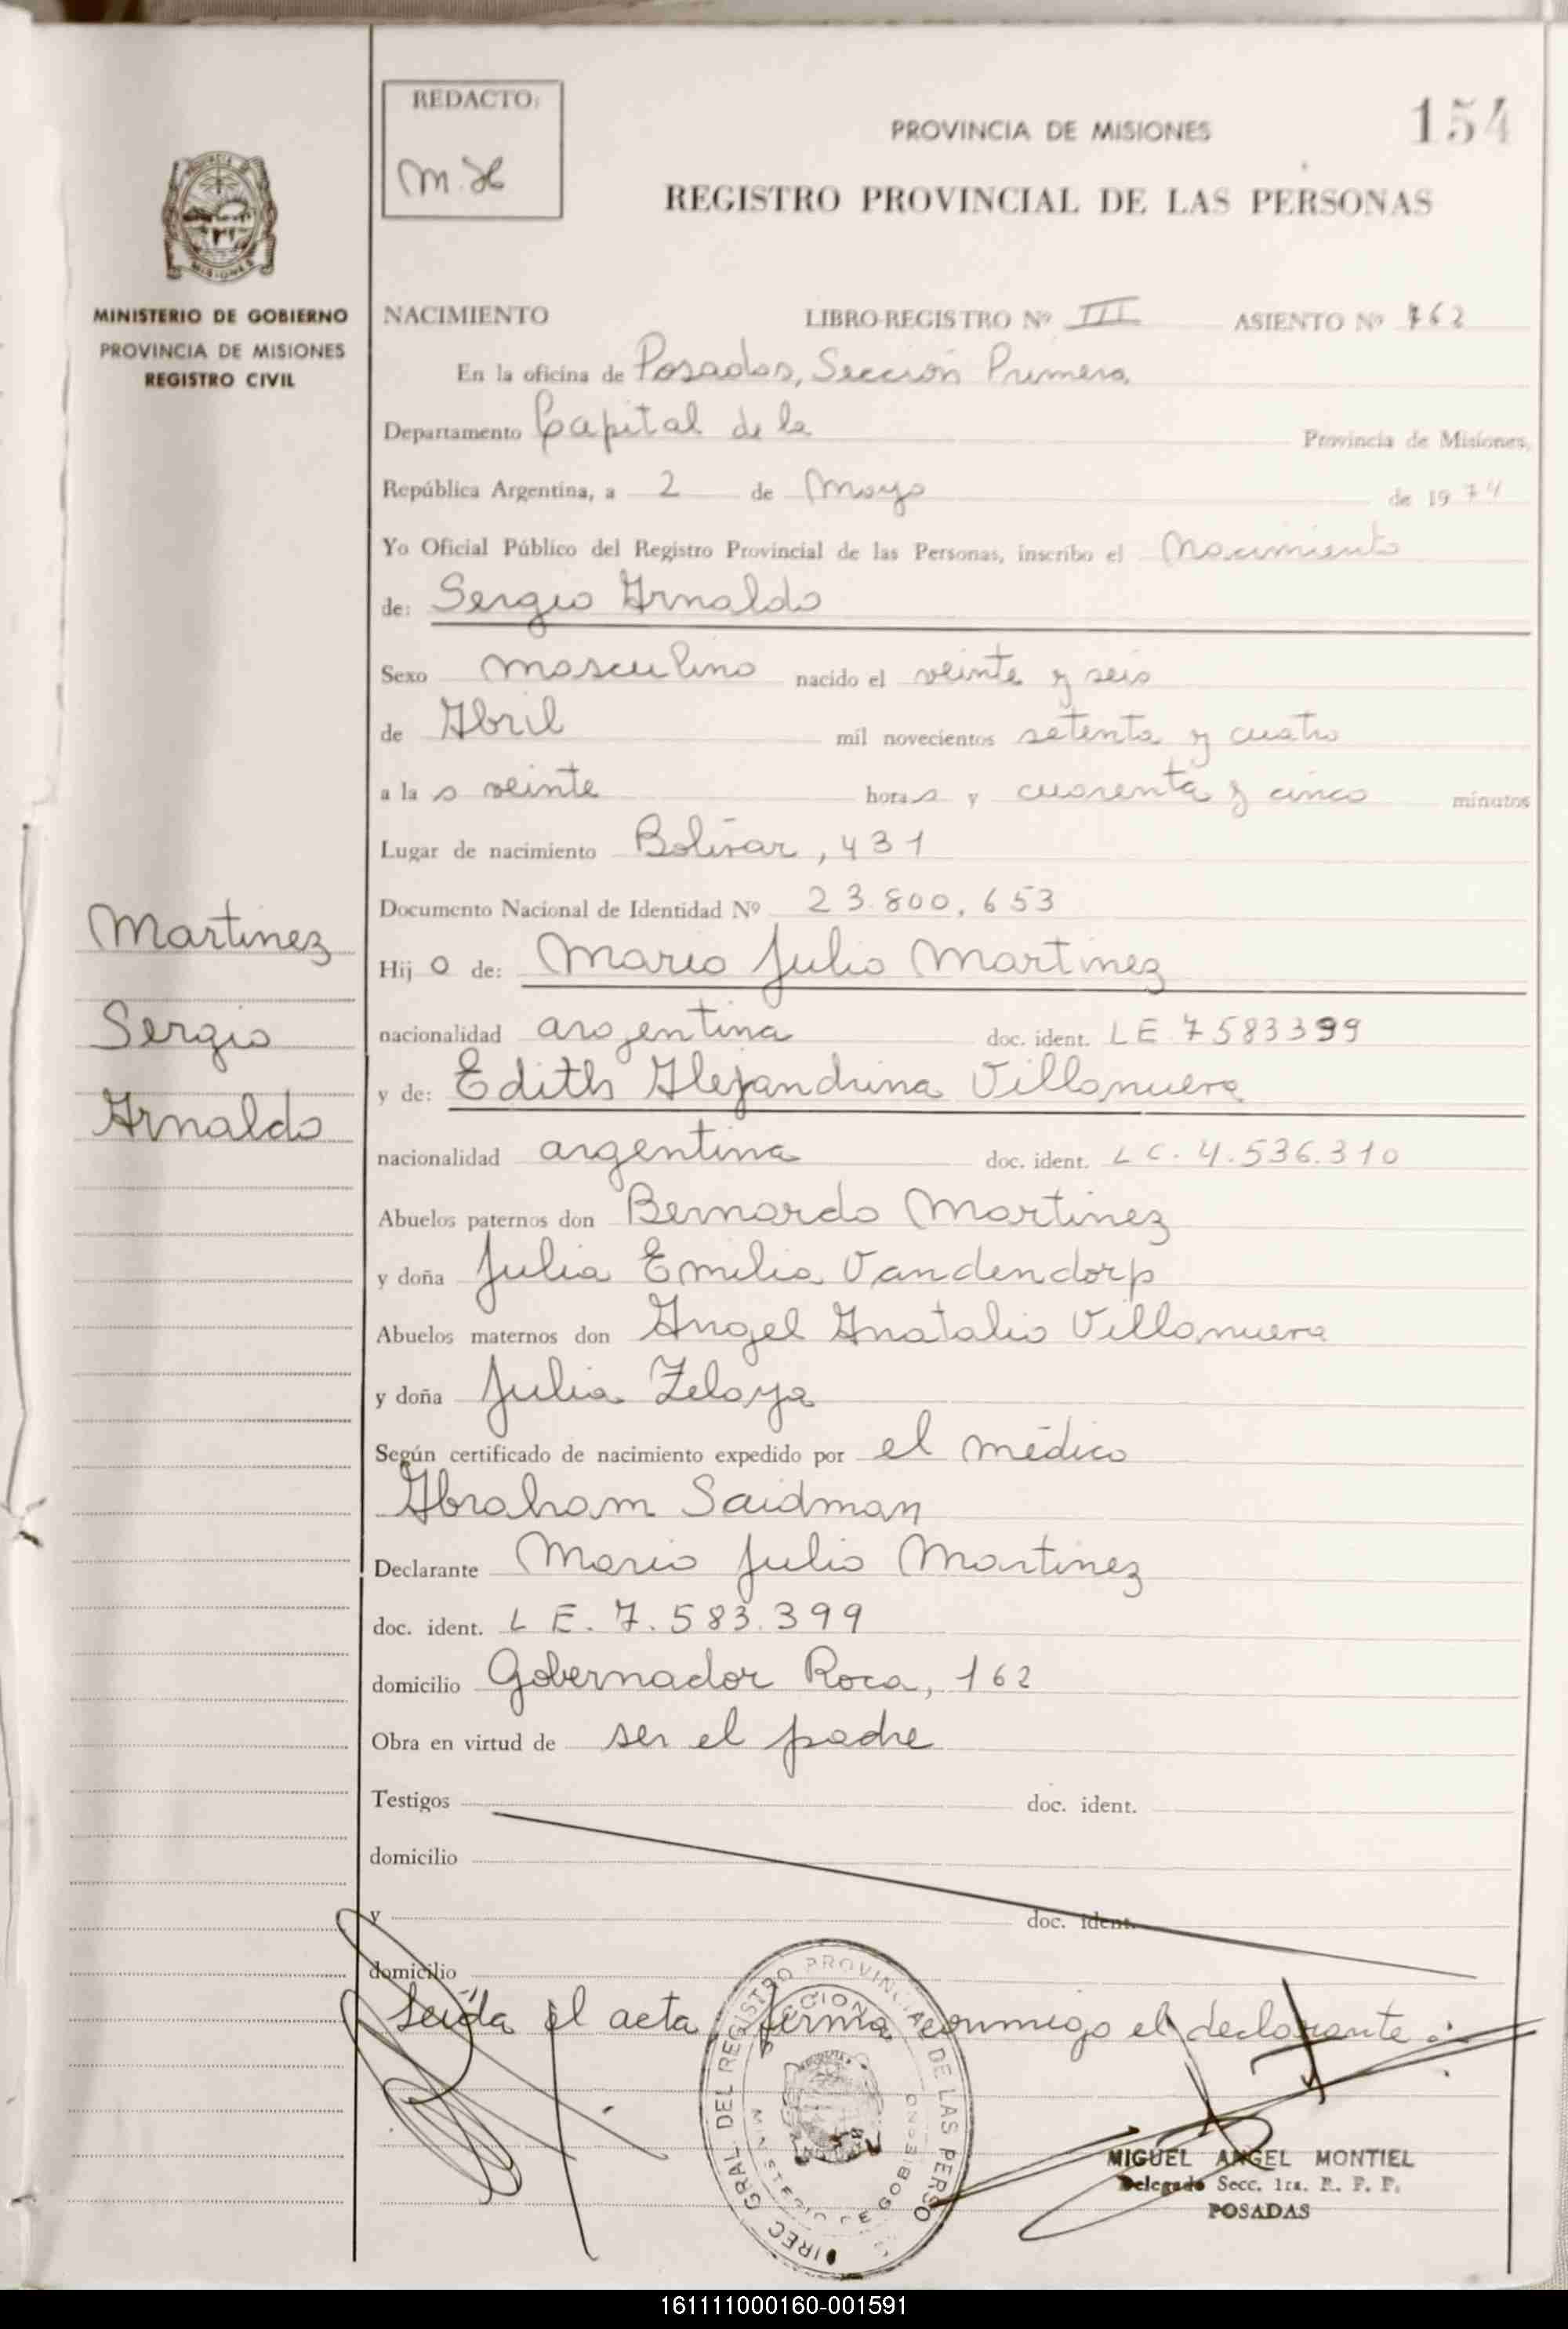 REDACTO:
M. H
PROVINCIA DE MISIONES
154
REGISTRO PROVINCIAL DE LAS PERSONAS
MISIONES
MINISTERIO DE GOBIERNO
PROVINCIA DE MISIONES
REGISTRO CIVIL
NACIMIENTO LIBRO-REGISTRO Nº III ASIENTO Nº 762
En la oficina de Posadas, Sección Primera,
Departamento Capital de la Provincia de Misiones,
República Argentina, a 2 de Mayo de 1974
Yo Oficial Público del Registro Provincial de las Personas, inscribo el Nacimiento
de: Sergio Arnaldo
Sexo masculino nacido el veinte y seis
de Abril mil novecientos setenta y cuatro
a la s veinte horas y cuarenta y cinco minutos
Lugar de nacimiento Bolívar, 431
Documento Nacional de Identidad Nº 23.800,653
Martinez
Sergio
Arnaldo
Hij o de: Mario Julio Martinez
nacionalidad argentina doc. ident. LE 7583399
y de: Edith Alejandrina Villanueva
nacionalidad argentina doc. ident. LC. 4.536.310
Abuelos paternos don Bernardo Martinez
y doña Julia Emilia Vandendorp
Abuelos maternos don Angel Anatalio Villanueva
y doña Julia Zeloya
Según certificado de nacimiento expedido por el médico
Abraham Saidman
Declarante Mario Julio Martinez
doc. ident. L E. 7.583.399
domicilio Gobernador Roca, 162
Obra en virtud de ser el padre
Testigos doc. ident.
domicilio
y doc. ident.
domicilio
Leída el acta, firma conmigo el declarante.
DIREC. GRAL. DEL REGISTRO PROVINCIAL DE LAS PERSO
MINISTERIO DE GOBIERNO
MIGUEL ANGEL MONTIEL
Delegado Secc. 1ra. R. P. P.
POSADAS
161111000160-001591